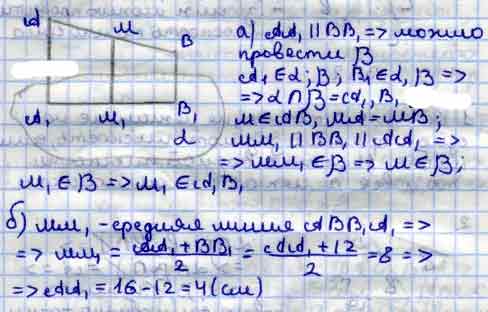 A M B
A₁ M₁ B₁
α
а) AA₁ || BB₁ => можно
провести β
A₁ ∈ α; β; B₁ ∈ α, β =>
=> α ∩ β = A₁, B₁
M ∈ AB, MA = MB;
MM₁ || BB₁ || AA₁ =>
=> MM₁ ∈ β => M ∈ β;
M₁ ∈ β => M₁ ∈ A₁B₁
б) MM₁ - средняя линия ABB₁A₁ =>
=> MM₁ = (AA₁ + BB₁)/2 = (AA₁ + 12)/2 = 8 =>
=> AA₁ = 16 - 12 = 4 (см)